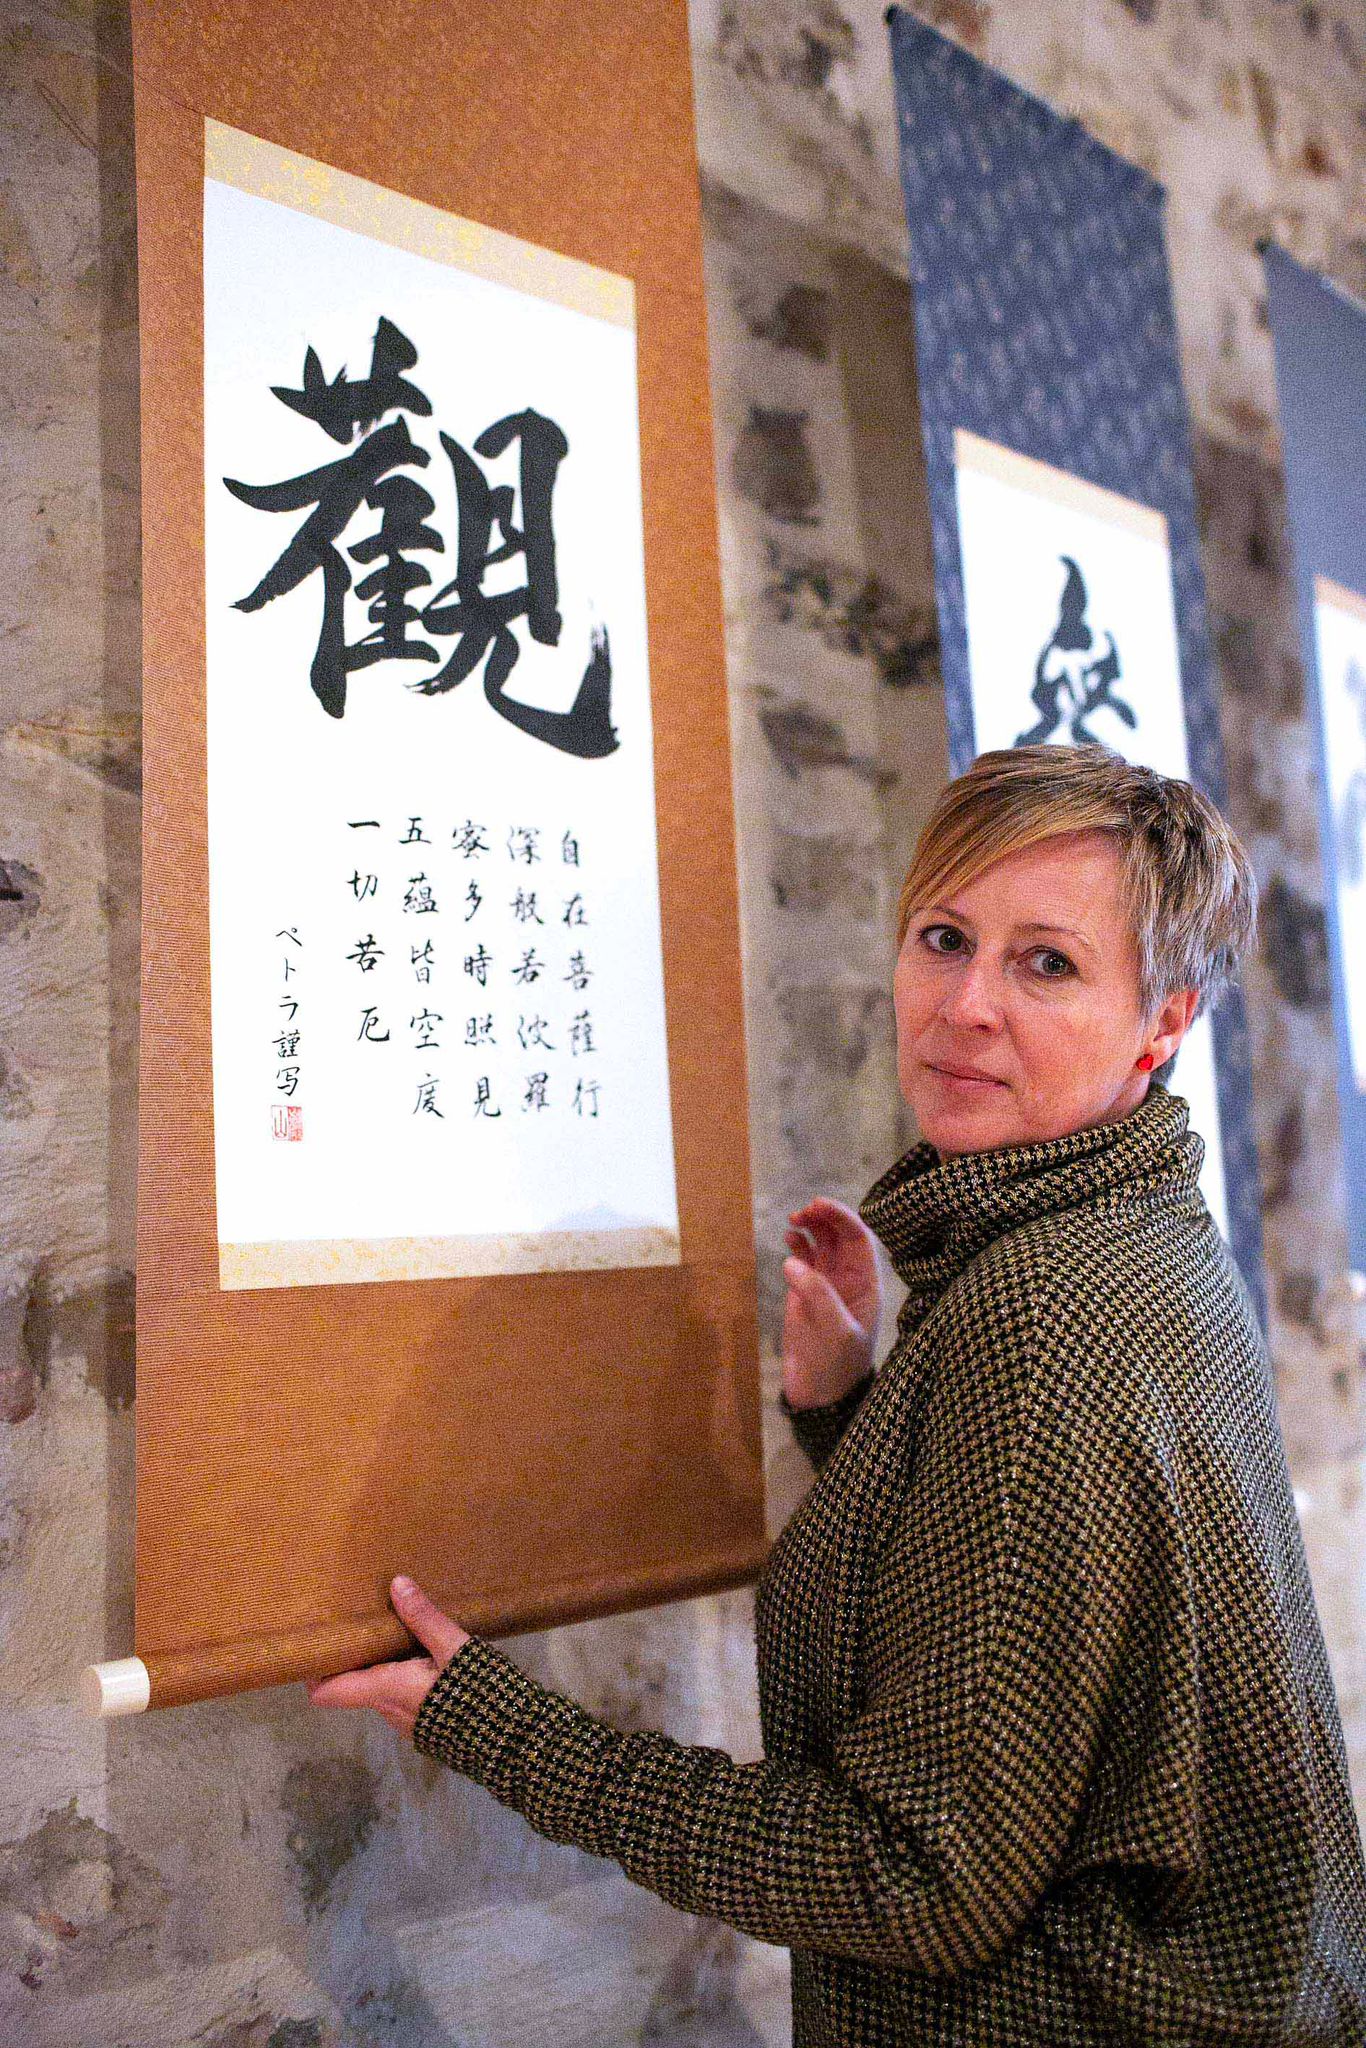 觀
自在菩薩行
深般若波羅
蜜多時照見
五蘊皆空度
一切苦厄
ペトラ謹写
山
無